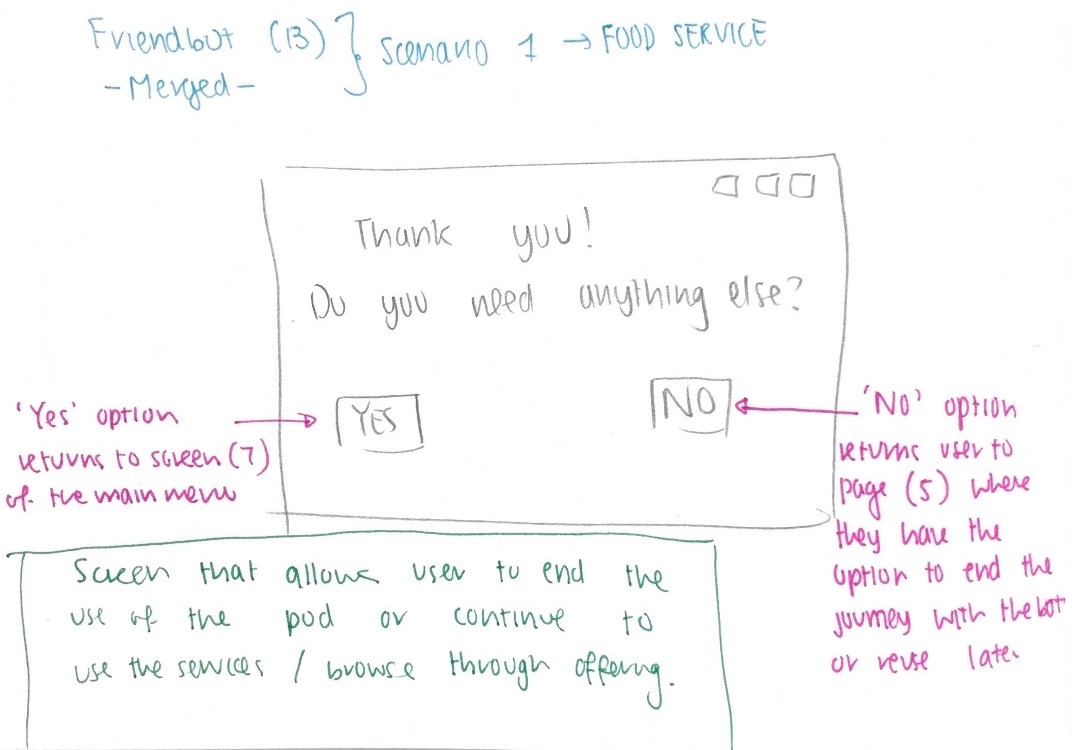 Friendbot (13) } Scenario 1 → FOOD SERVICE
- Merged -
Thank you!
Do you need anything else?
YES
NO
'Yes' option
returns to screen (7)
of the main menu
'NO' option
returns user to
page (5) where
they have the
option to end the
journey with the bot
or reuse later
Screen that allows user to end the
use of the pod or continue to
use the services / browse through offering.